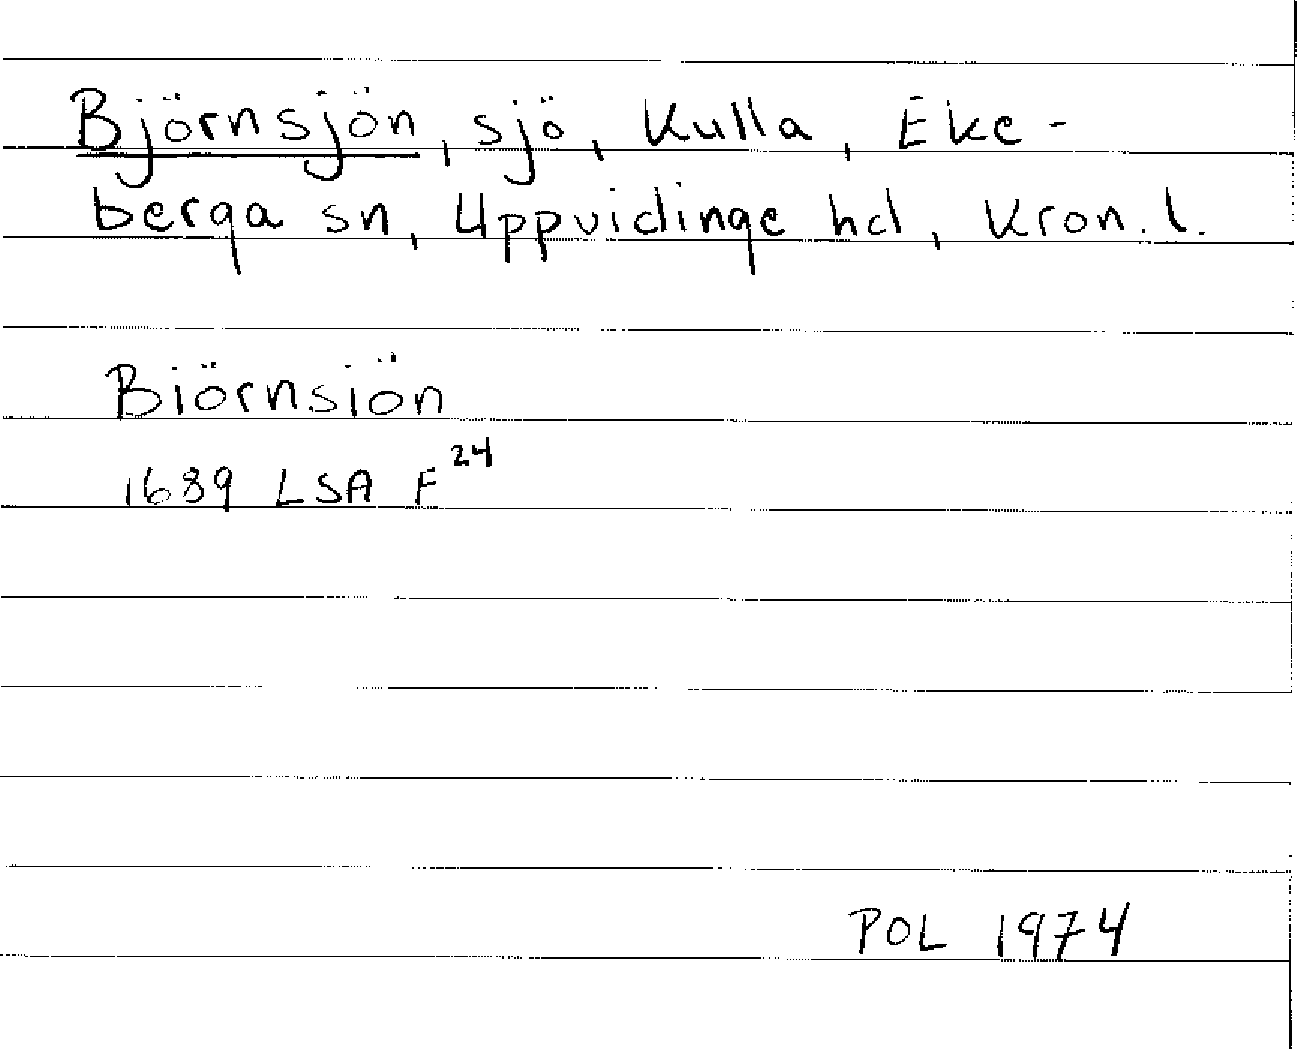 Björnsjön, sjö, Kulla, Eke-
berga sn, Uppvidinge hd, Kron. l.
Biörnsiön
1689 LSA F 24
POL 1974